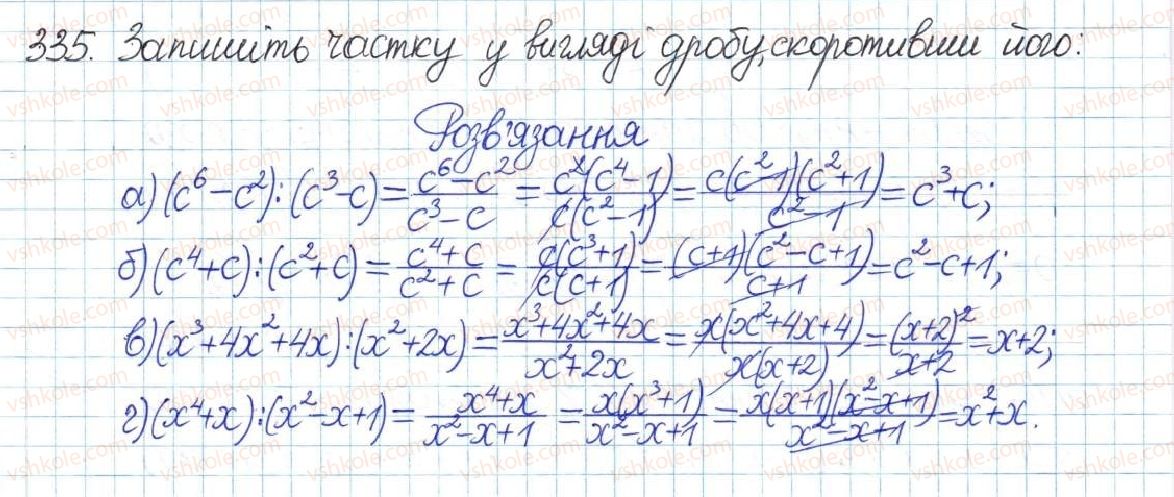 335. Запишіть частку у вигляді дробу, скоротивши його:
Розв'язання
а) (c⁶-c²):(c³-c) = (c⁶-c²)/(c³-c) = c²(c⁴-1)/(c(c²-1)) = c(c²-1)(c²+1)/(c²-1) = c³+c;
б) (c⁴+c):(c²+c) = (c⁴+c)/(c²+c) = c(c³+1)/(c(c+1)) = (c+1)(c²-c+1)/(c+1) = c²-c+1;
в) (x³+4x²+4x):(x²+2x) = (x³+4x²+4x)/(x²+2x) = x(x²+4x+4)/(x(x+2)) = (x+2)²/(x+2) = x+2;
г) (x⁴+x):(x²-x+1) = (x⁴+x)/(x²-x+1) = x(x³+1)/(x²-x+1) = x(x+1)(x²-x+1)/(x²-x+1) = x²+x.